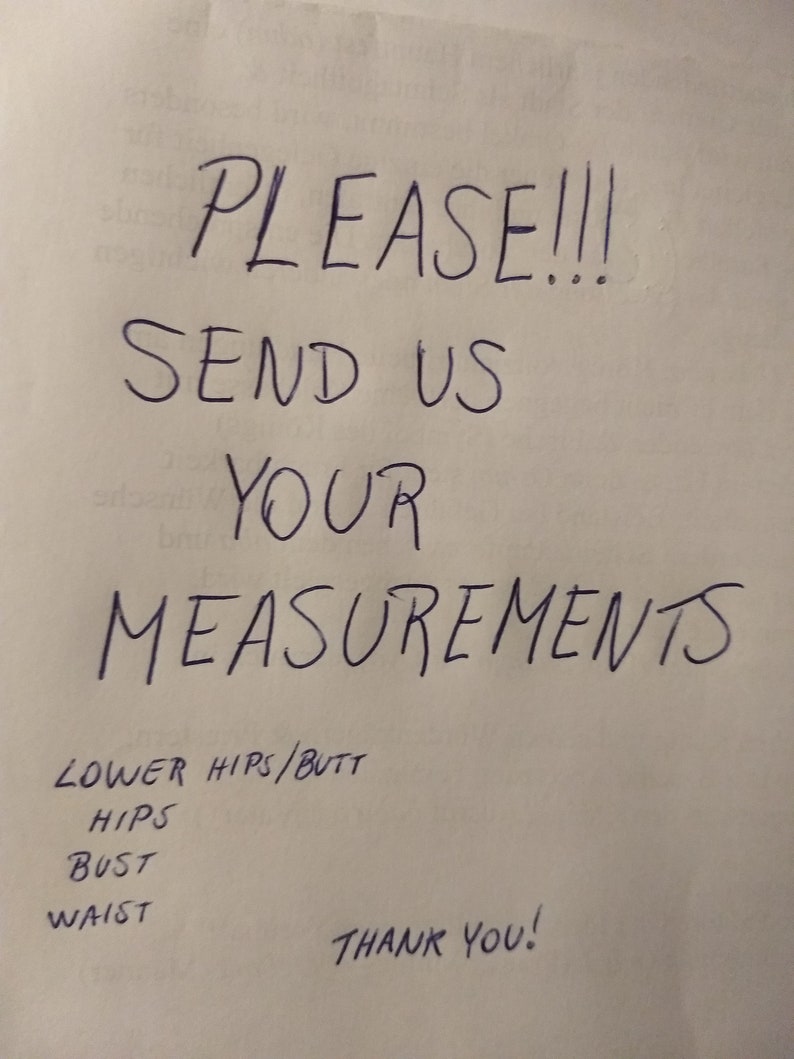 PLEASE!!!
SEND US
YOUR
MEASUREMENTS
LOWER HIPS/BUTT
HIPS
BUST
WAIST
THANK YOU!